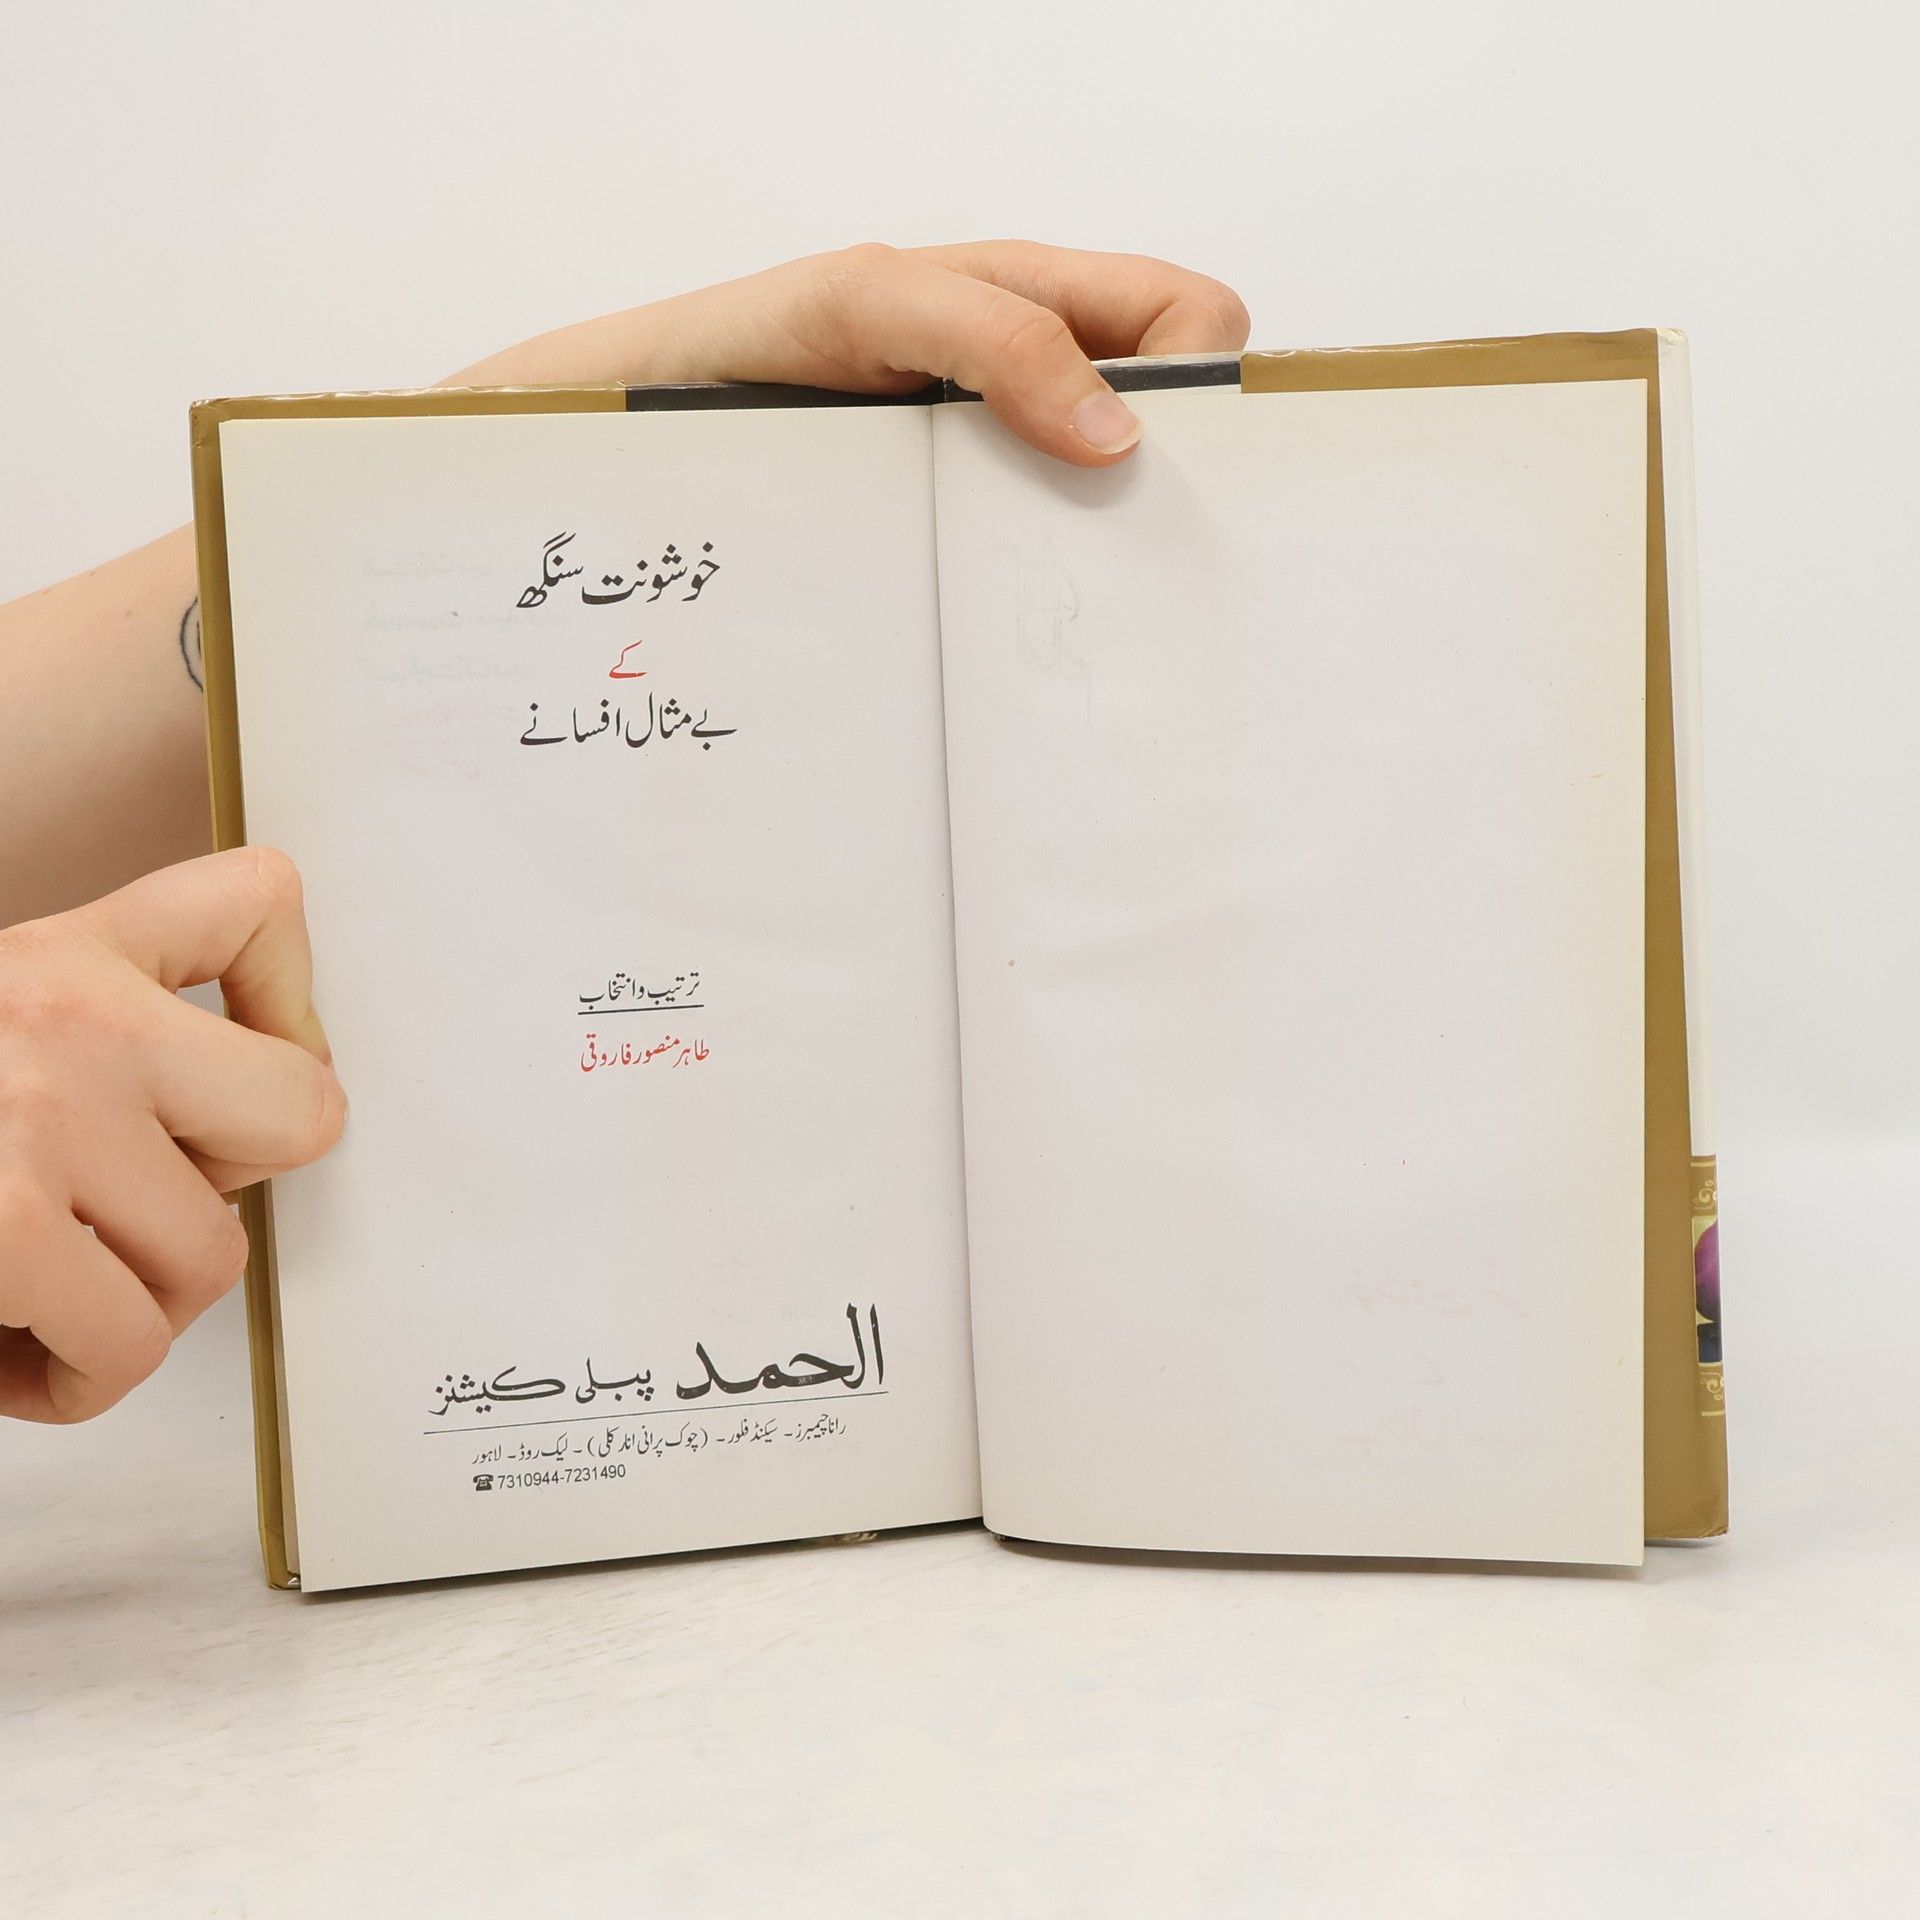 خوشونت سنگھ
کے
بے مثال افسانے
ترتیب و انتخاب
طاہر منصور فاروقی
الحمد پبلی کیشنز
رانا چیمبرز۔ سیکنڈ فلور۔ (چوک پرانی انار کلی)۔ لیک روڈ۔ لاہور
☎ 7310944-7231490